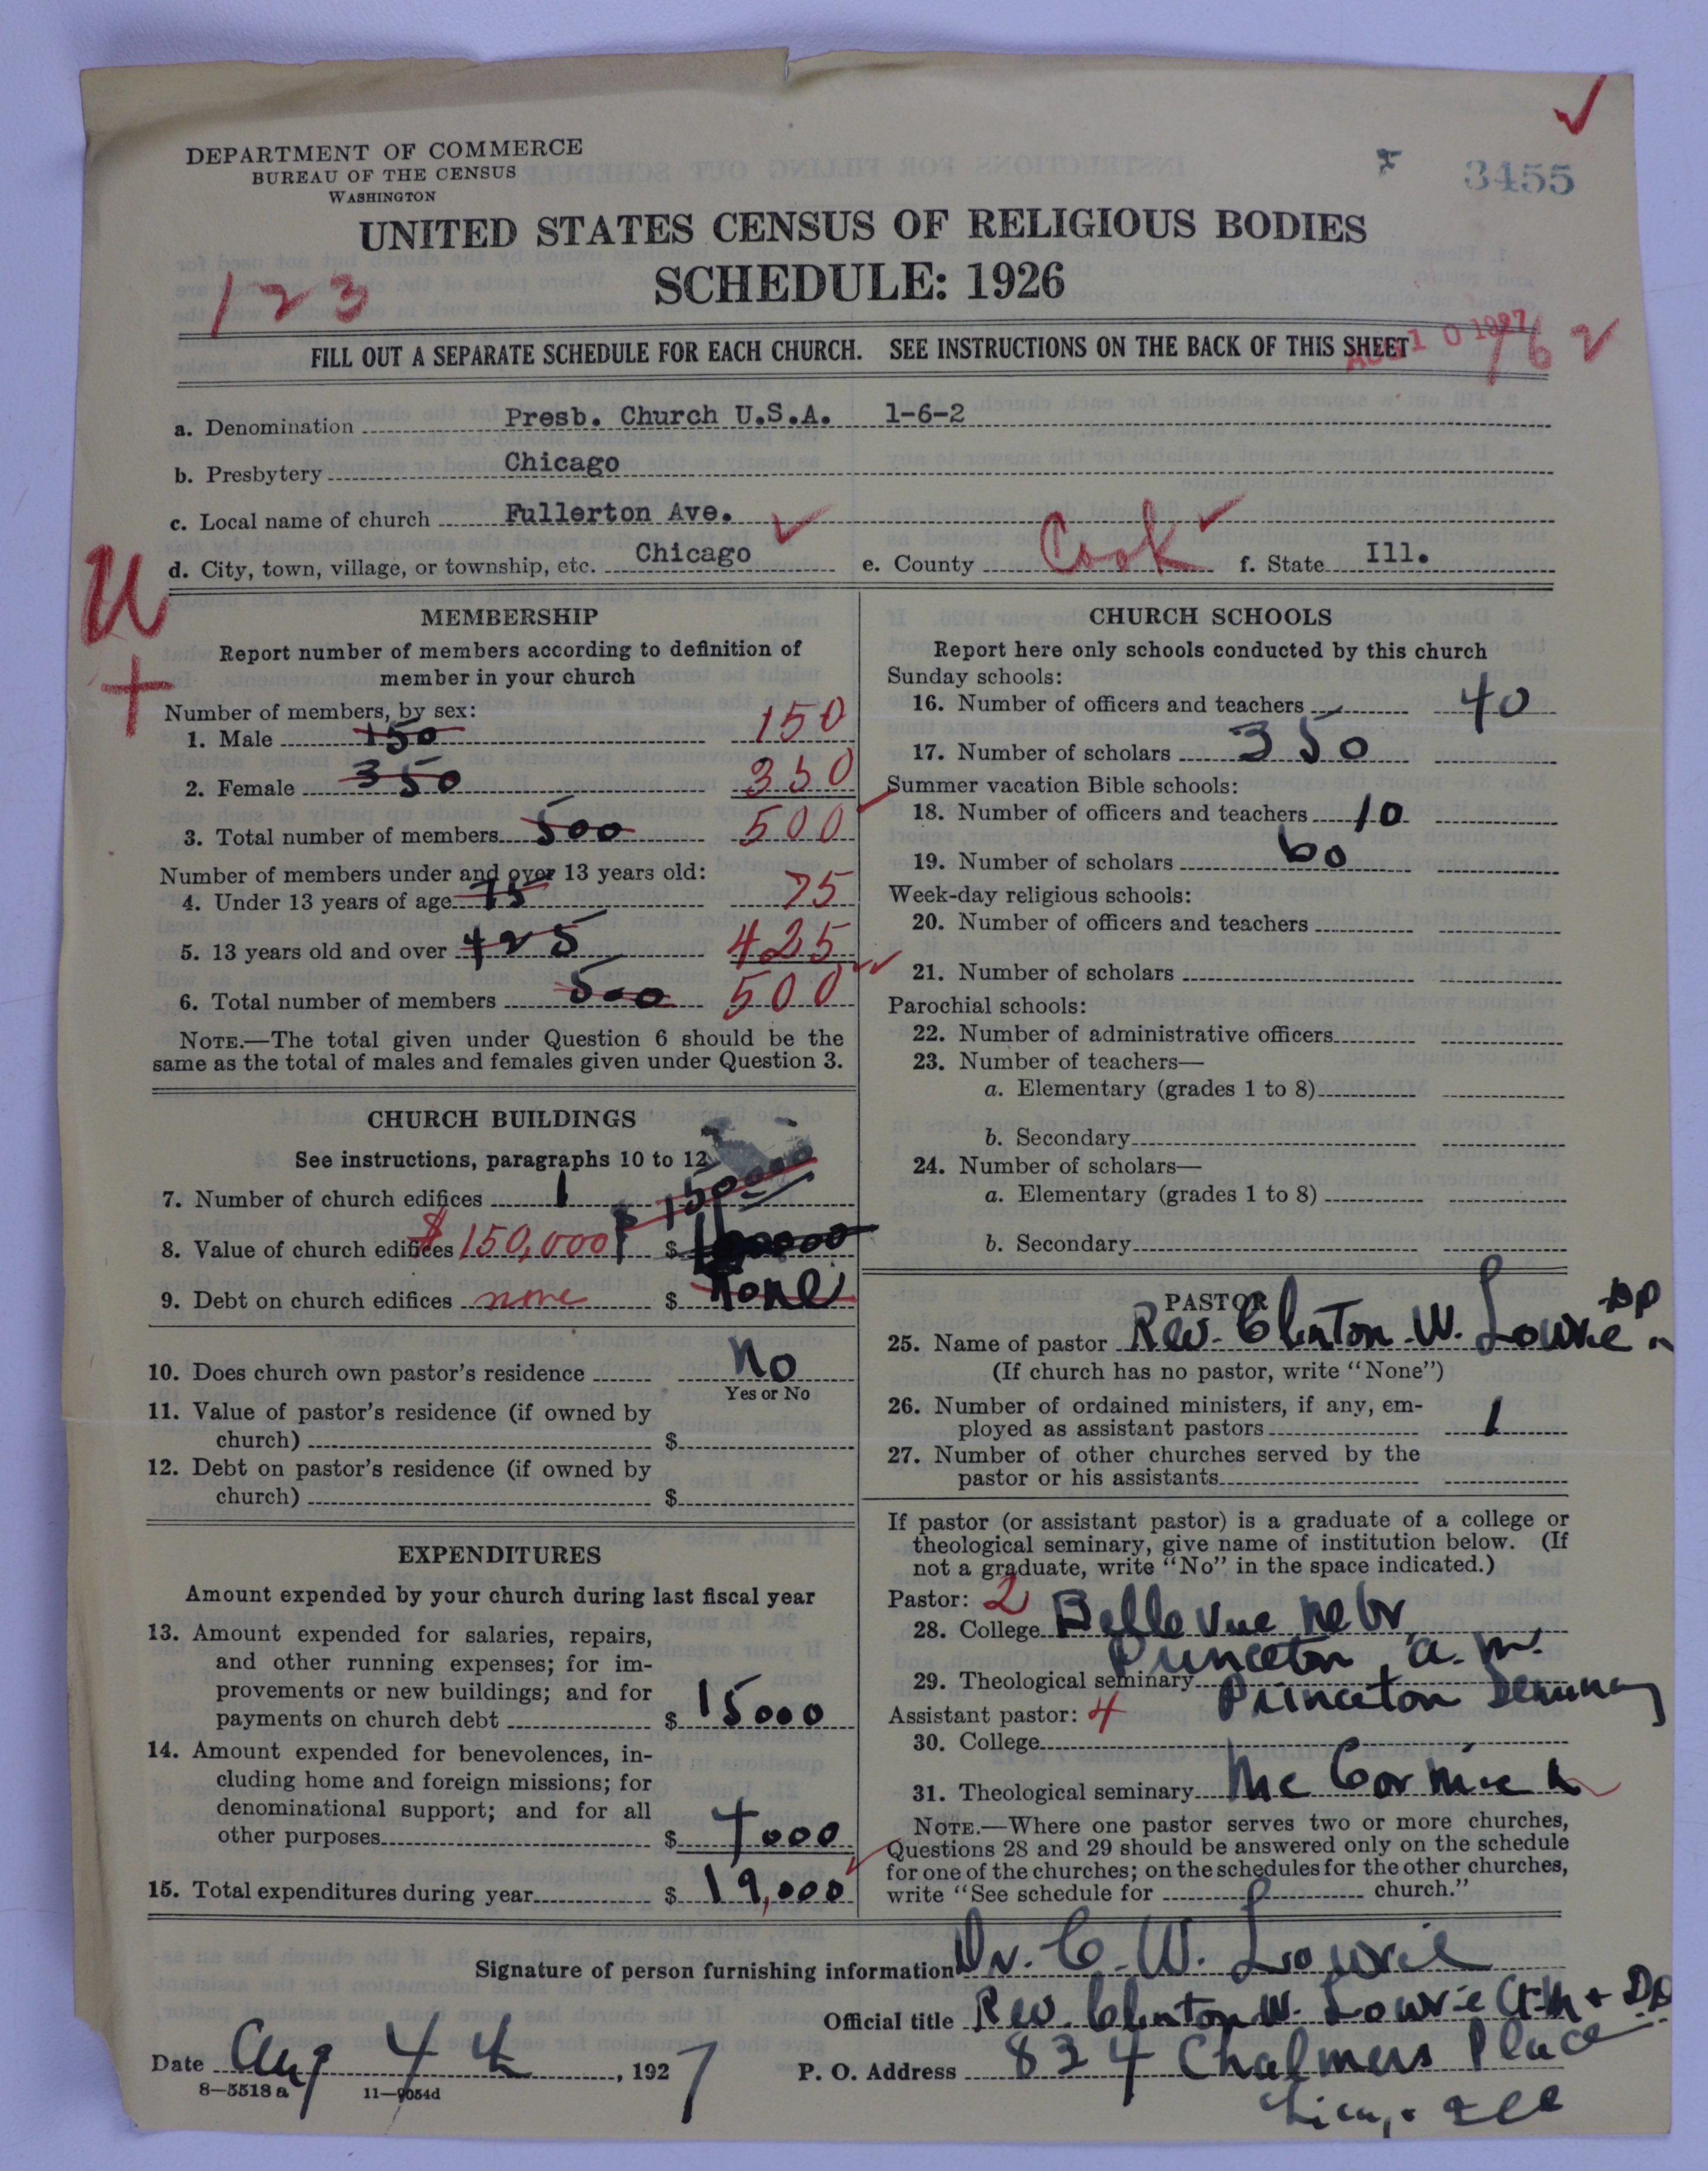 DEPARTMENT OF COMMERCE
BUREAU OF THE CENSUS
WASHINGTON
3455
UNITED STATES CENSUS OF RELIGIOUS BODIES
SCHEDULE: 1926
123
AUG 10 1927
162
FILL OUT A SEPARATE SCHEDULE FOR EACH CHURCH. SEE INSTRUCTIONS ON THE BACK OF THIS SHEET
a. Denomination Presb. Church U.S.A. 1-6-2
b. Presbytery Chicago
c. Local name of church Fullerton Ave.
d. City, town, village, or township, etc. Chicago e. County Cook f. State Ill.
U
+
MEMBERSHIP
Report number of members according to definition of
member in your church
Number of members, by sex:
1. Male 150 150
2. Female 350 350
3. Total number of members 500 500
Number of members under and over 13 years old:
4. Under 13 years of age 75 75
5. 13 years old and over 425 425
6. Total number of members 500 500
NOTE.—The total given under Question 6 should be the
same as the total of males and females given under Question 3.
CHURCH BUILDINGS
See instructions, paragraphs 10 to 12
7. Number of church edifices 1
$ 150000
8. Value of church edifices $150,000 $
9. Debt on church edifices none $ None
10. Does church own pastor's residence No
Yes or No
11. Value of pastor's residence (if owned by
church) $
12. Debt on pastor's residence (if owned by
church) $
EXPENDITURES
Amount expended by your church during last fiscal year
13. Amount expended for salaries, repairs,
and other running expenses; for im-
provements or new buildings; and for
payments on church debt $ 15000
14. Amount expended for benevolences, in-
cluding home and foreign missions; for
denominational support; and for all
other purposes $ 4000
15. Total expenditures during year $ 19,000
CHURCH SCHOOLS
Report here only schools conducted by this church
Sunday schools:
16. Number of officers and teachers 40
17. Number of scholars 350
Summer vacation Bible schools:
18. Number of officers and teachers 10
19. Number of scholars 60
Week-day religious schools:
20. Number of officers and teachers
21. Number of scholars
Parochial schools:
22. Number of administrative officers
23. Number of teachers—
a. Elementary (grades 1 to 8)
b. Secondary
24. Number of scholars—
a. Elementary (grades 1 to 8)
b. Secondary
PASTOR
25. Name of pastor Rev. Clinton W. Lowrie DD
(If church has no pastor, write "None")
26. Number of ordained ministers, if any, em-
ployed as assistant pastors 1
27. Number of other churches served by the
pastor or his assistants
If pastor (or assistant pastor) is a graduate of a college or
theological seminary, give name of institution below. (If
not a graduate, write "No" in the space indicated.)
Pastor: 2
28. College Bellevue Nebr.
Princeton A.M.
29. Theological seminary Princeton Seminary
Assistant pastor: 4
30. College
31. Theological seminary McCormick
NOTE.—Where one pastor serves two or more churches,
Questions 28 and 29 should be answered only on the schedule
for one of the churches; on the schedules for the other churches,
write "See schedule for church."
Signature of person furnishing information Dr. C. W. Lowrie
Official title Rev. Clinton W. Lowrie & DD
Date Aug 4th, 1927 P. O. Address 834 Chalmers Place
8-5518a 11-9054d
Ill